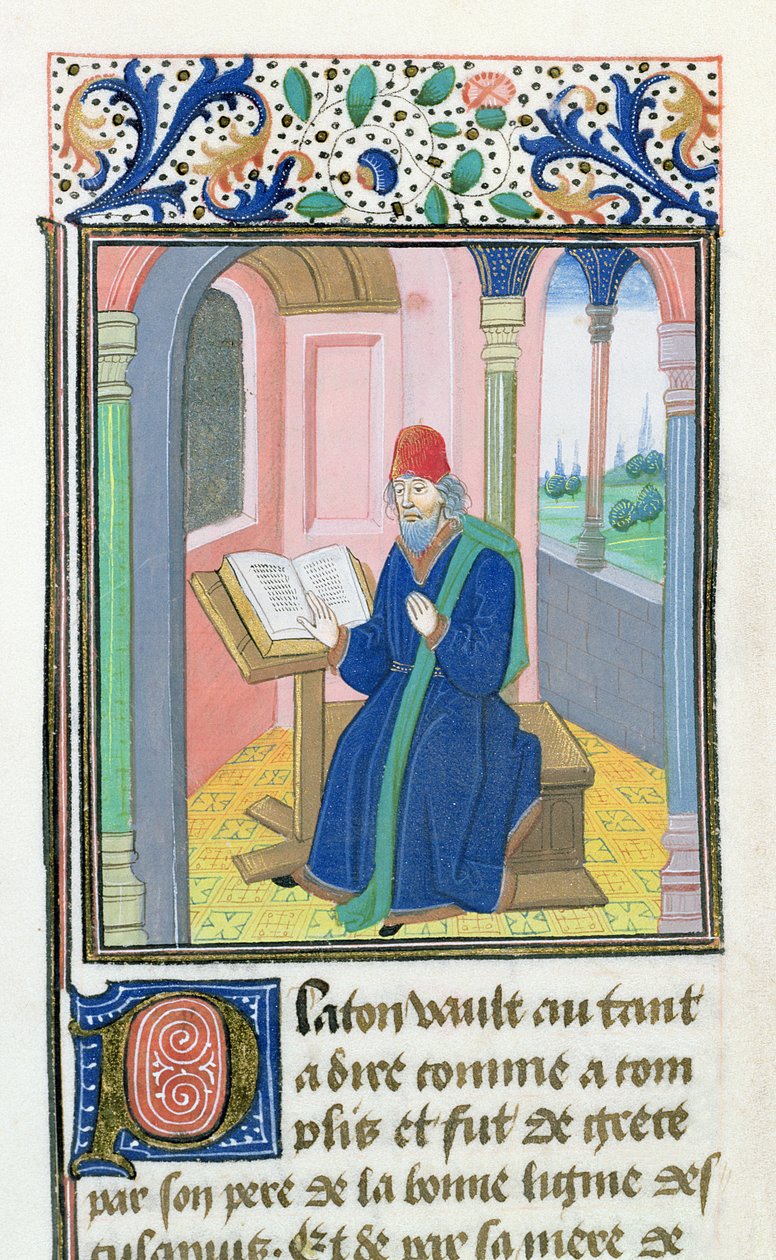 Platon vault autant
a dire comme acom
pliz et fut de grece
par son pere de la bonne lignie des
culapiuz. Et de par sa mere de